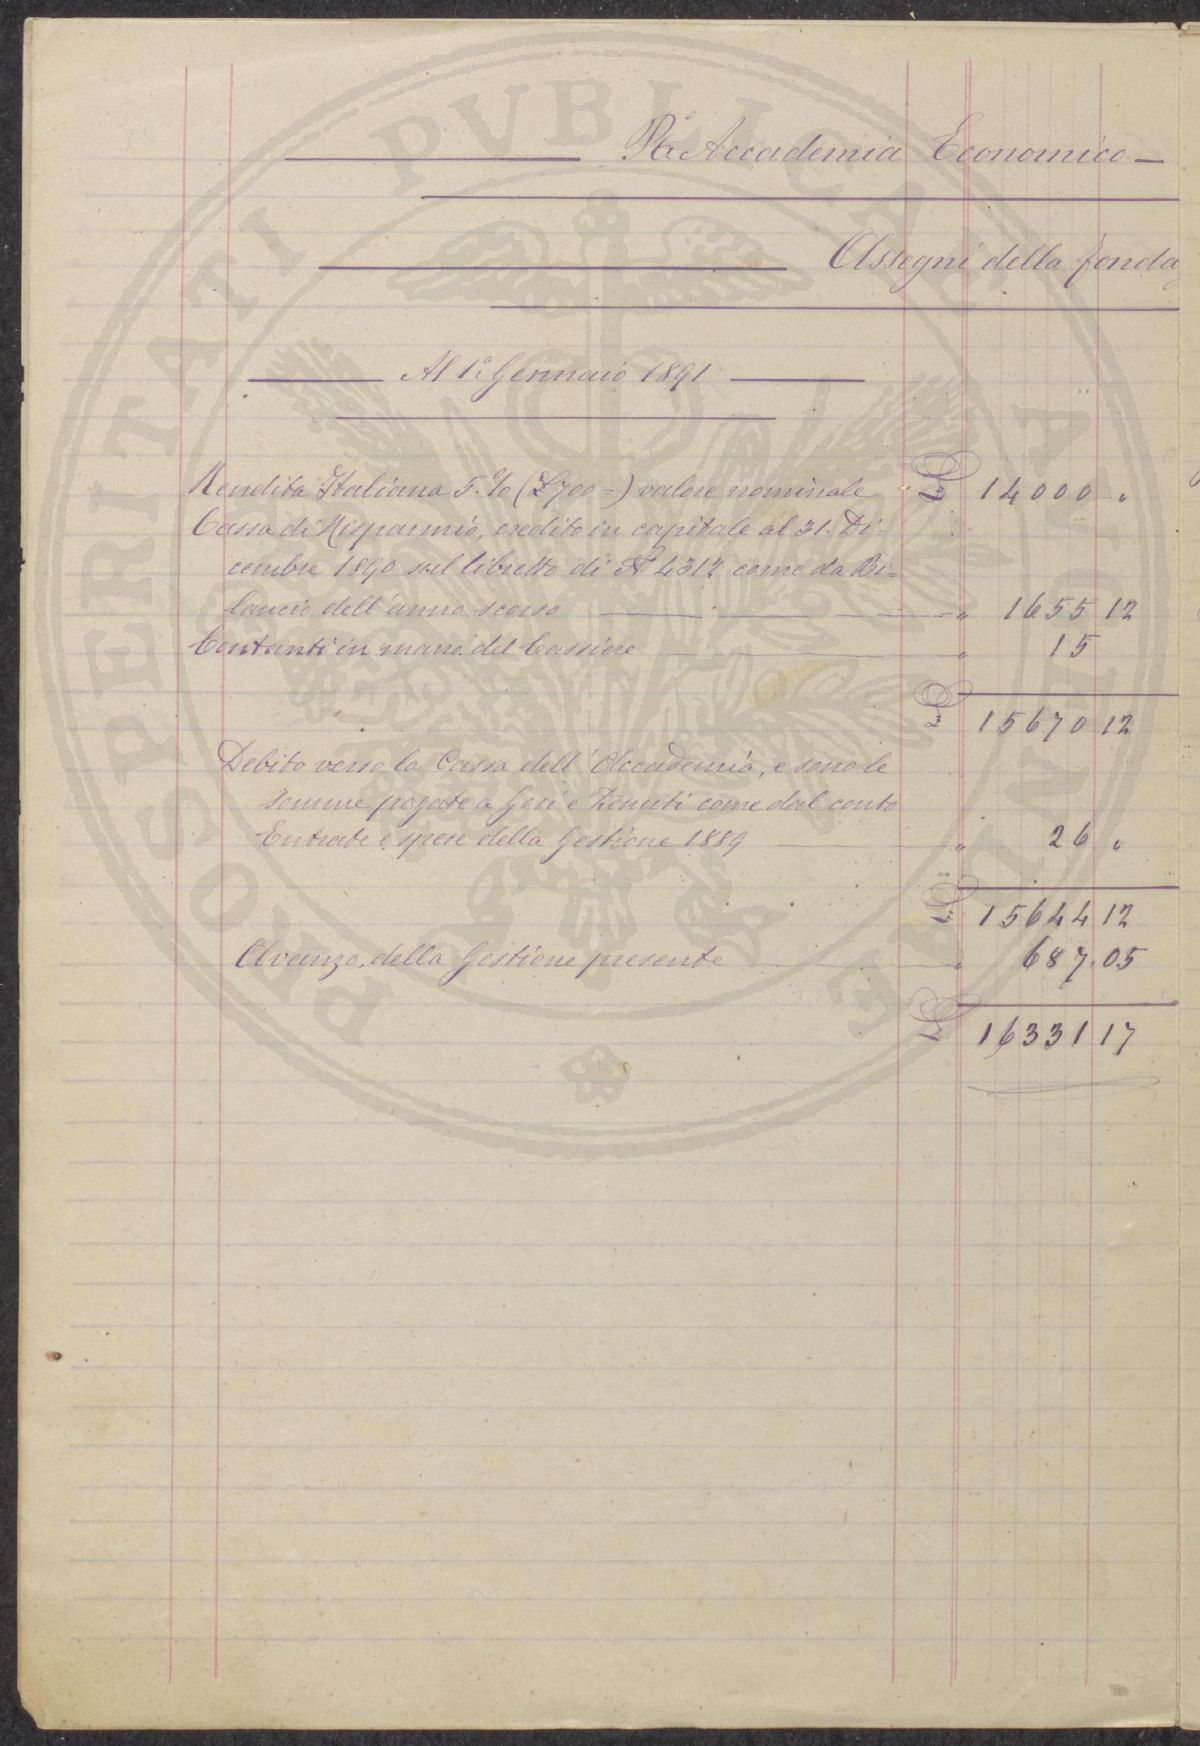 Rª Accademia Economico —
Assegni della fonda
Al 1º Gennaio 1891
Rendita Italiana 5.% (£700 =) valore nominale £ 14000 "
Cassa di Risparmio, credito in capitale al 31. Di=
cembre 1890 sul libretto di Nº 4312 come da Bi=
lancio dell'anno scorso — " 1655 12
Contanti in mano del Cassiere — " 15
£ 15670 12
Debito verso la Cassa dell'Accademia, e sono le
somme pagate a Gori e come dal conto
Entrate e spese della Gestione 1889 — " 26 "
£ 15644 12
Avanzo della Gestione presente — " 687.05
£ 16331 17
PUBLICAE
PROSPERITATI